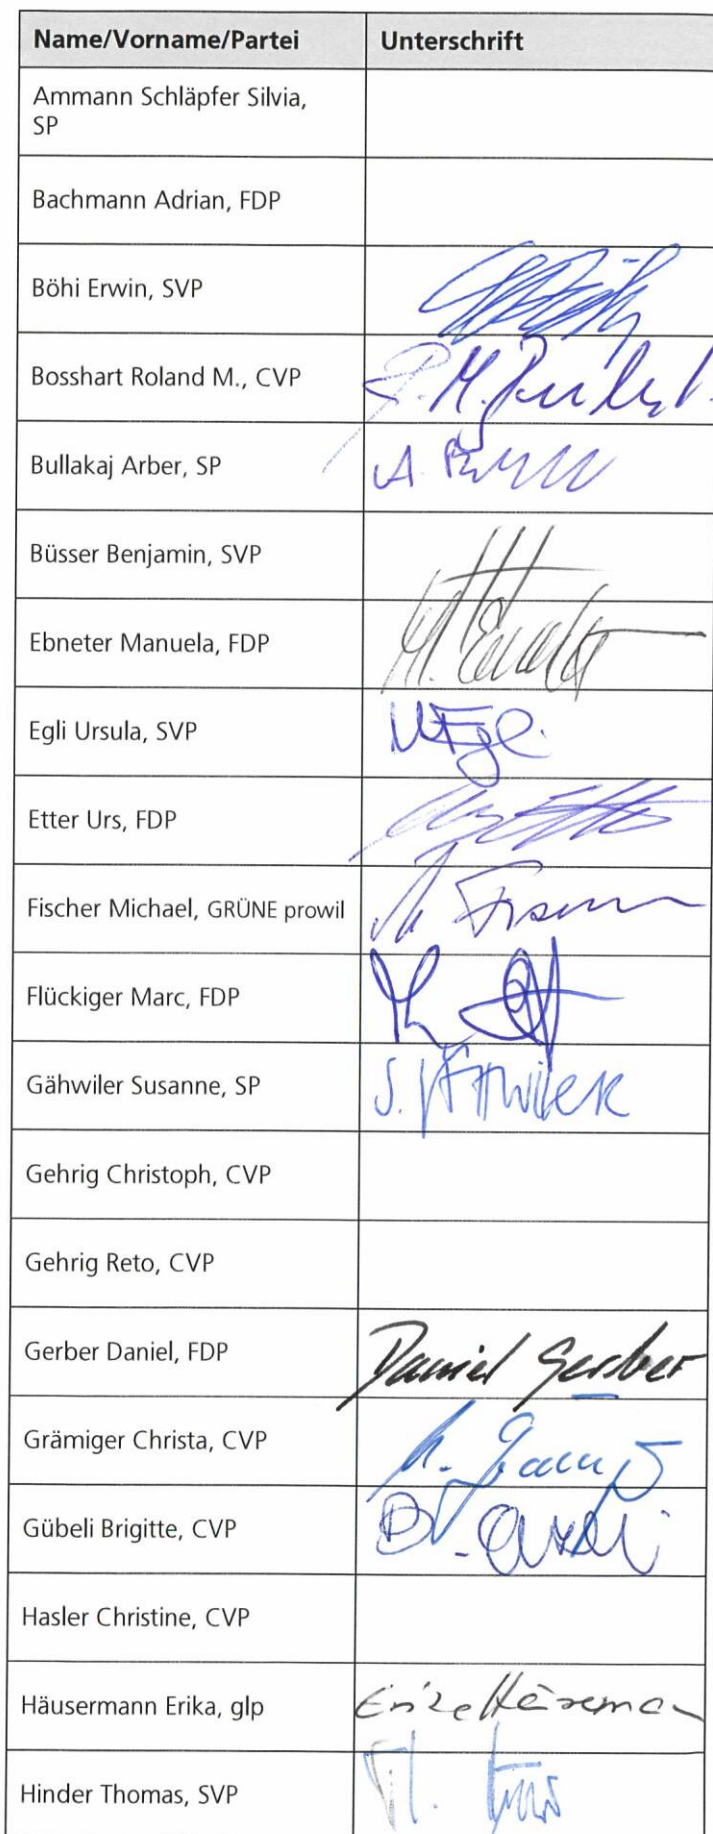 Name/Vorname/Partei Unterschrift
Ammann Schläpfer Silvia,
SP
Bachmann Adrian, FDP
Böhi Erwin, SVP
Bosshart Roland M., CVP
Bullakaj Arber, SP A.
Büsser Benjamin, SVP
Ebneter Manuela, FDP M.
Egli Ursula, SVP U Egli
Etter Urs, FDP Urs Etter
Fischer Michael, GRÜNE prowil
Flückiger Marc, FDP
Gähwiler Susanne, SP S.
Gehrig Christoph, CVP
Gehrig Reto, CVP
Gerber Daniel, FDP Daniel Gerber
Grämiger Christa, CVP
Gübeli Brigitte, CVP
Hasler Christine, CVP
Häusermann Erika, glp
Hinder Thomas, SVP